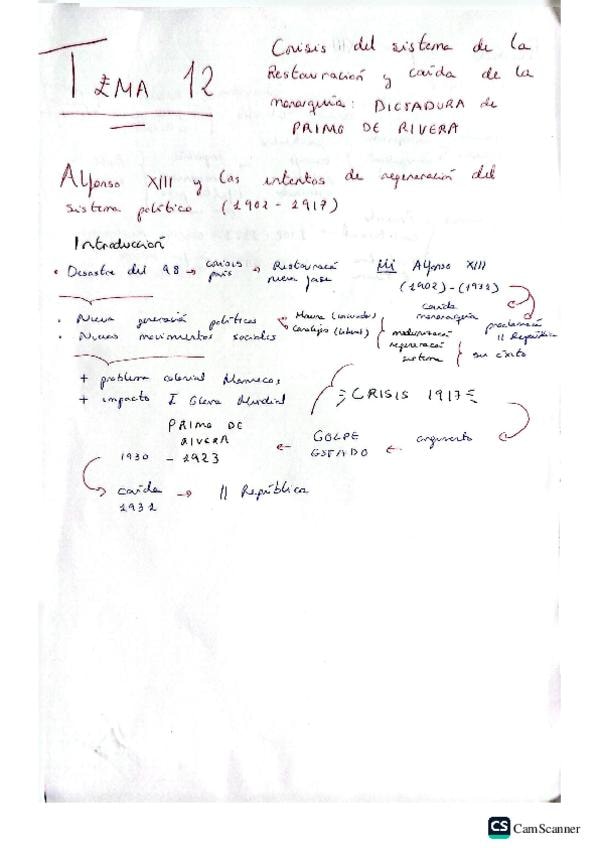 TEMA 12
Crisis del sistema de la
Restauración y caída de la
monarquía: DICTADURA de
PRIMO DE RIVERA
Alfonso XIII y los intentos de regeneración del
sistema político (1902 - 1917)
Introducción
• Desastre del 98 → crisis país → Restauració nueva fase Alfonso XIII
(1902) - (1931)
caída monarquía
proclamació II República
• Nueva generació políticos Maura (conservador)
• Nuevos movimientos sociales Canalejas (liberal)
modernizació regeneració sistema
sin éxito
+ problema colonial Marruecos
+ impacto I Guerra Mundial
CRISIS 1917
argumento
GOLPE ESTADO
PRIMO DE RIVERA
1930 - 1923
caída → II República
1931
CS CamScanner